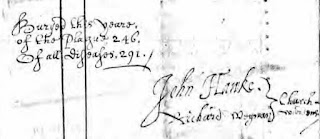 Buryed this yeare
of the Plague 246.
Of all diseases. 291.
John Hanke.
Richard Weyman Church
wardens